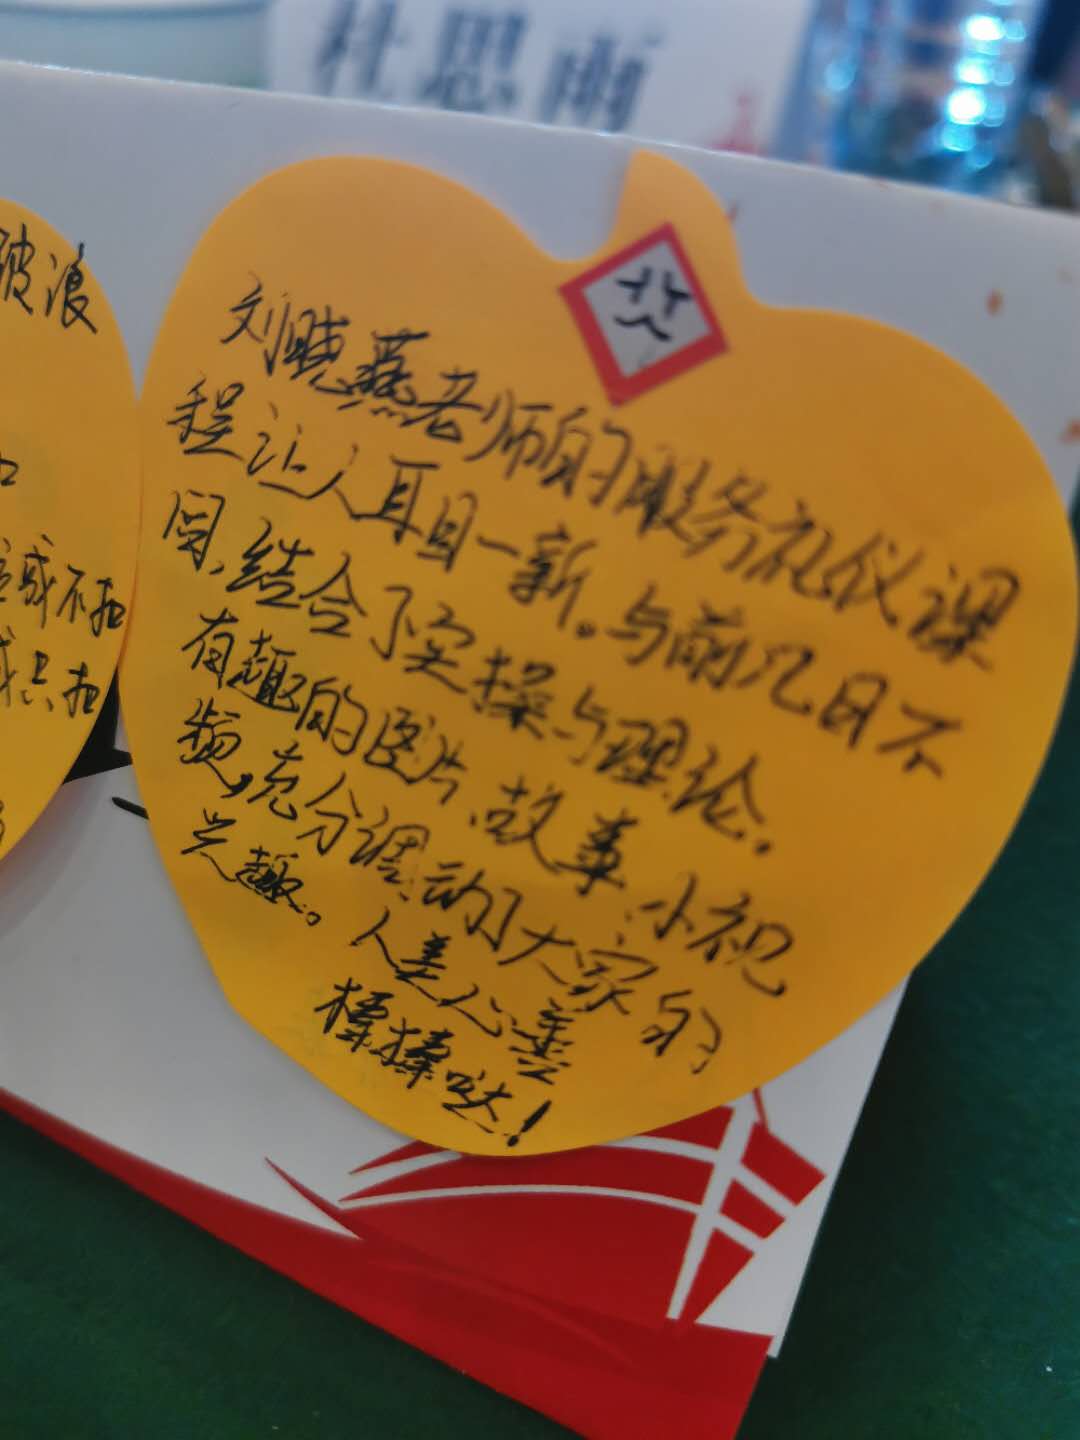 杜思雨
刘晓燕老师的服务礼仪课
程让人耳目一新。与前几日不
同，结合了实操与理论，
有趣的图片、故事、小视
频，充分调动了大家的
兴趣。人美心善
棒棒哒！
破浪
或不扣
或只扣